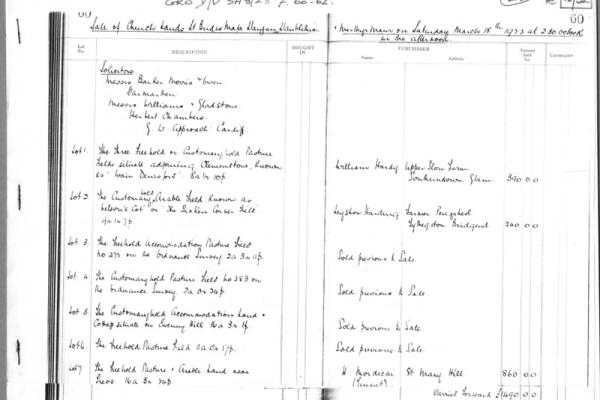 GRO D/V SH8/25 f. 60-62.
60
60
Sale of Church Lands St Brides Major Llangan Llanblethian & Merthyr Mawr on Saturday March 18th 1922 at 2.30 o'clock
in the afternoon.
Lot No
DESCRIPTION
BOUGHT IN
PURCHASER
Name
Address
Amount sold for
Commission
Solicitors
Messrs Barker Morris & Owen
Carmarthen
Messrs Williams & Gladstone
Herbert Chambers
G. W. Approach Cardiff
Lot 1
The Three Freehold or Customaryhold Pasture
Fields situate adjoining Clemenstone, known
as
William Hardy
Upper Slon Farm
Southerndown Glam
390 0 0
Lot 2
The Customaryhold Arable Field known as
Nelson's Cot or The Sixteen Corner Field
Leyshon Harding
Farmer
Tythegston Bridgend
240 0 0
Lot 3
The Freehold Accommodation Pasture Field
no 277 on the Ordnance Survey 2a 3r 11p.
Sold previous to Sale.
Lot 4
The Customaryhold Pasture Field no 283 on
the Ordnance Survey 2a 0r 24p.
Sold previous to Sale.
Lot 5
The Customaryhold Accommodation Land &
situate on Ewenny Hill 16a 3r 1p
Sold previous to Sale.
Lot 6
The Freehold Pasture Field 8a 0r 17p.
Sold previous to Sale.
Lot 7
The Freehold Pasture & Arable Land near
Treos. 16a 3r 24p
W Mordecai
(Tenant)
St Mary Hill
860 0 0
Carried Forward £1490 0 0